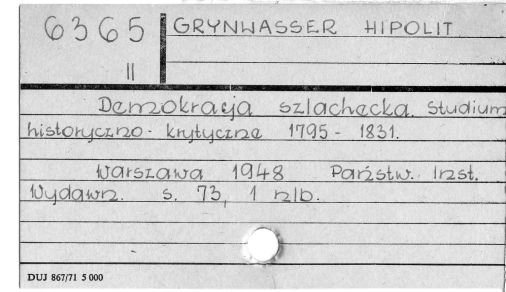 6365 GRYNWASSER HIPOLIT
II
Demokracja szlachecka. Studium
historyczno-krytyczne 1795-1831.
Warszawa 1948 Państw. Inst.
Wydawn. s. 73, 1 nlb.
DUJ 867/71 5 000